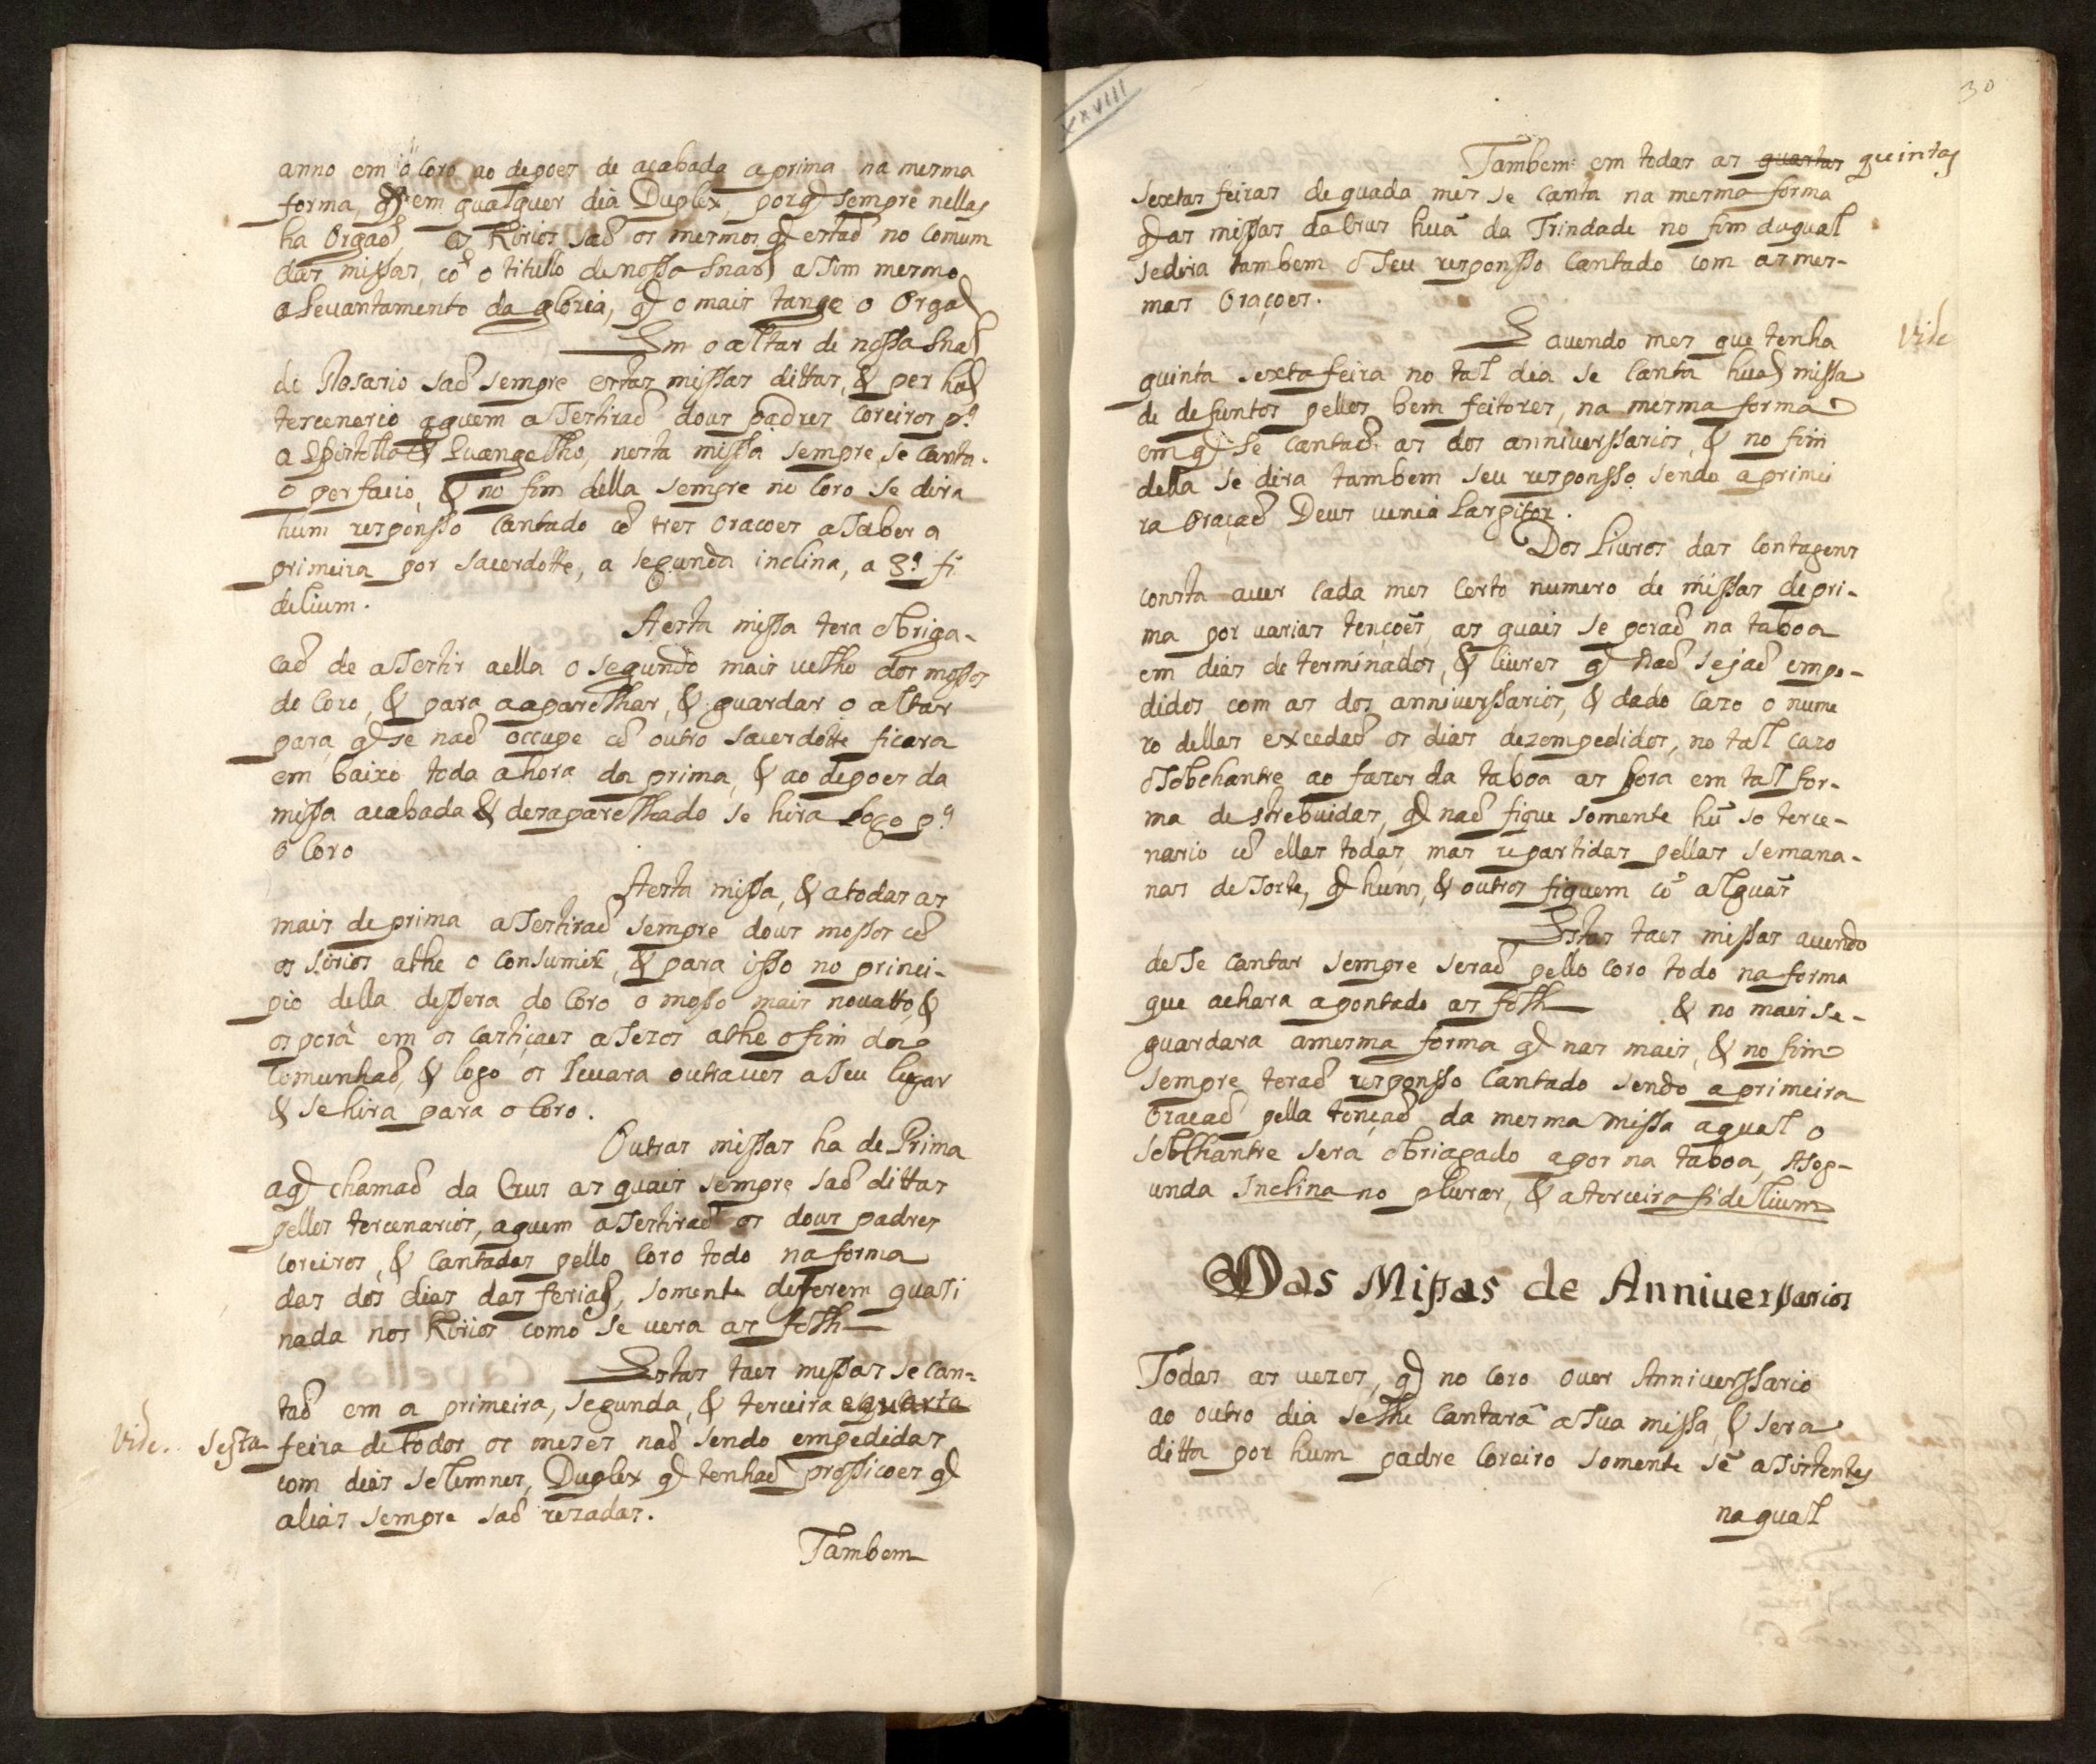 anno em o Coro ao depoes de acabada a prima na mesma
forma, q̃ em qualquer dia Duplex, porq̃ sempre nellas
ha Orgaõ, Os Kirios saõ os mesmos q̃ estaõ no Comum
das missas, cõ o titullo de nossa Snar̃ assim mesmo
a levantamento da gloria, q̃ o mais tange o Orgaõ
Em o altar de nossa Snar̃
do Rosario saõ sempre estas missas dittas, & per hũ
tercenario a quem assestiraõ dous padres Coreiros p.ª
a Epistolla & Evangelho, nesta missa sempre se canta.
o perfacio, & no fim della sempre no Coro se dira
hum responsso Cantado cõ tres oracoes a saber a
primeira por sacerdotte, a segunda inclina, a 3.ª fi
delium.
A esta missa tera obriga-
çaõ de assestir a ella o segundo mais velho dos mossos
do Coro, & para a aparelhar, & guardar o altar
para q̃ se naõ occupe cõ outro sacerdotte ficara
em baixo toda a hora da prima, & ao depoes da
missa acabada & desaparelhado se hira logo p.ª
o Coro
A esta missa, & a todas as
mais de prima assestiraõ sempre dous mossos cõ
os sirios athe o consumir, & para isso no princi-
pio della dessera do Coro o mosso mais novatto, &
os porá em os castiçaes asezos athe o fim da
Comunhaõ, & logo os levara outra ves a seu lugar
& se hira para o Coro.
Outras missas ha de Prima
a q̃ chamaõ da Crus as quais sempre saõ dittas
pellos tercenarios, a quem assestiraõ os dous padres
Coreiros, & Cantadas pello Coro todo na forma
das dos dias das ferias, somente deferem quasi
nada nos Kirios como se vera as folh—
Estas taes missas se can-
taõ em a primeira, segunda, & terceira e quarta
Vide. sesta feira de todos os meses naõ sendo empedidas
com dias solemnes, Duplex q̃ tenhaõ prossicoes q̃
alias sempre saõ rezadas.
Tambem
XXVIII
30
Tambem em todas as quartas quintas
sextas feiras de quada mes se canta na mesma forma
q̃ as missas da Crus huã da Trindade no fim da qual
se dira tambem o seu responsso Cantado com as mes-
mas Oraçoes.
E avendo mes que tenha Vide
quinta sexta feira no tal dia se Canta huã missa
de defuntos pellos bem feitores, na mesma forma
em q̃ se cantaõ as dos anniverssarios, & no fim
della se dira tambem seu responsso sendo a primei
ra Oraçaõ Deus venia Largitor.
Dos Livros das Contagens
consta aver cada mes certo numero de missas de pri-
ma por varias tençoẽs, as quais se poraõ na taboa
em dias determinados, & livres q̃ naõ sejaõ empe-
didos com as dos anniverssarios, & dado cazo o nume
ro dellas excedaõ os dias dezempedidos, no tal cazo
o sobchantre ao fazer da taboa as pora em tal for-
ma destrebuidas, q̃ naõ fique somente hũ so terce-
nario cõ ellas todas, mas repartidas pellas semana-
nas de sorte, q̃ huns, & outros fiquem cõ alguãs
Estas taes missas avendo
de se cantar sempre seraõ pello Coro todo na forma
que achara apontado as folh— & no mais se-
guardara a mesma forma q̃ nas mais, & no fim
sempre teraõ responsso Cantado sendo a primeira
Oraçaõ pella tençaõ da mesma missa a qual o
sobchantre sera obriagado a por na taboa, A seg-
unda Inclina no plurar, & a terceira fidelium
Das Missas de Anniverssarios
Todas as vezes, q̃ no Coro ouver Anniverssario
ao outro dia se lhe cantará a sua missa, & sera
ditta por hum padre Coreiro somente sẽ assistentes
na qual